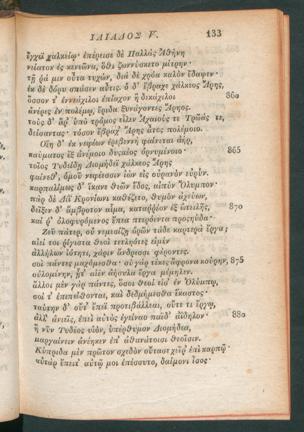 ΙΛΙΑΔΟΣ Ε. 133
ἔγχει χαλκείῳ· ἐπέρεισε δὲ Παλλὰς Ἀθήνη
νείατον ἐς κενεῶνα, ὅθι ζωννύσκετο μίτρην·
τῇ ῥά μιν οὖτα τυχών, διὰ δὲ χρόα καλὸν ἔδαψεν·
ἐκ δὲ δόρυ σπάσεν αὖτις. ὁ δ' ἔβραχε χάλκεος Ἄρης,
ὅσσον τ' ἐννεάχιλοι ἐπίαχον ἢ δεκάχιλοι 860
ἀνέρες ἐν πολέμῳ, ἔριδα ξυνάγοντες Ἄρηος.
τοὺς δ' ἄρ' ὑπὸ τρόμος εἷλεν Ἀχαιούς τε Τρῶάς τε,
δείσαντας· τόσον ἔβραχ' Ἄρης ἆτος πολέμοιο.
Οἵη δ' ἐκ νεφέων ἐρεβεννὴ φαίνεται ἀήρ,
καύματος ἐξ ἀνέμοιο δυσαέος ὀρνυμένοιο· 865
τοῖος Τυδείδῃ Διομήδεϊ χάλκεος Ἄρης
φαίνεθ', ὁμοῦ νεφέεσσιν ἰὼν εἰς οὐρανὸν εὐρύν.
καρπαλίμως δ' ἵκανε θεῶν ἕδος, αἰπὺν Ὄλυμπον·
πὰρ δὲ Διῒ Κρονίωνι καθέζετο, θυμὸν ἀχεύων,
δεῖξεν δ' ἄμβροτον αἷμα, καταῤῥέον ἐξ ὠτειλῆς, 870
καί ῥ' ὀλοφυρόμενος ἔπεα πτερόεντα προςηύδα·
Ζεῦ πάτερ, οὐ νεμεσίζῃ ὁρῶν τάδε καρτερὰ ἔργα;
αἰεί τοι ῥίγιστα θεοὶ τετληότες εἰμὲν
ἀλλήλων ἰότητι, χάριν ἄνδρεσσι φέροντες.
σοὶ πάντες μαχόμεσθα· σὺ γὰρ τέκες ἄφρονα κούρην, 875
οὐλομένην, ᾗτ' αἰὲν ἀήσυλα ἔργα μέμηλεν.
ἄλλοι μὲν γὰρ πάντες, ὅσοι θεοί εἰσ' ἐν Ὀλύμπῳ,
σοί τ' ἐπιπείθονται, καὶ δεδμήμεσθα ἕκαστος·
ταύτην δ' οὔτ' ἔπεϊ προτιβάλλεαι, οὔτε τι ἔργῳ,
ἀλλ' ἀνιεῖς, ἐπεὶ αὐτὸς ἐγείναο παῖδ' ἀΐδηλον· 880
ἣ νῦν Τυδέος υἱόν, ὑπέρθυμον Διομήδεα,
μαργαίνειν ἀνέηκεν ἐπ' ἀθανάτοισι θεοῖσιν.
Κύπριδα μὲν πρῶτον σχεδὸν οὔτασε χεῖρ' ἐπὶ καρπῷ·
αὐτὰρ ἔπειτ' αὐτῷ μοι ἐπέσσυτο, δαίμονι ἶσος·